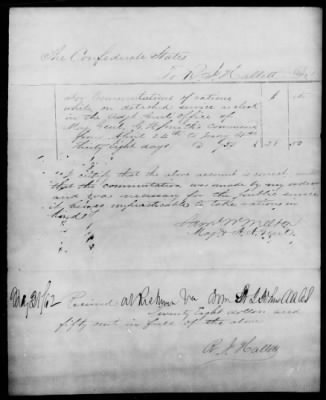 The Confederate States
To R. J. Hallett Dr
For Commutations of rations
while on detached service as clerk
in the Adjt Genl Office of
Maj Genl G. W. Smith's Command
from April 24th to
thirty eight days
I certify that the above account is correct and
that the commutation was made by my order
and was necessary for the public service
it being impracticable to take rations in
kind
Saml W Melton
Maj &
May 31/62 Received at Richmond Va from
Twenty Eight dollars and
fifty cents in full of the above
R. J. Hallett